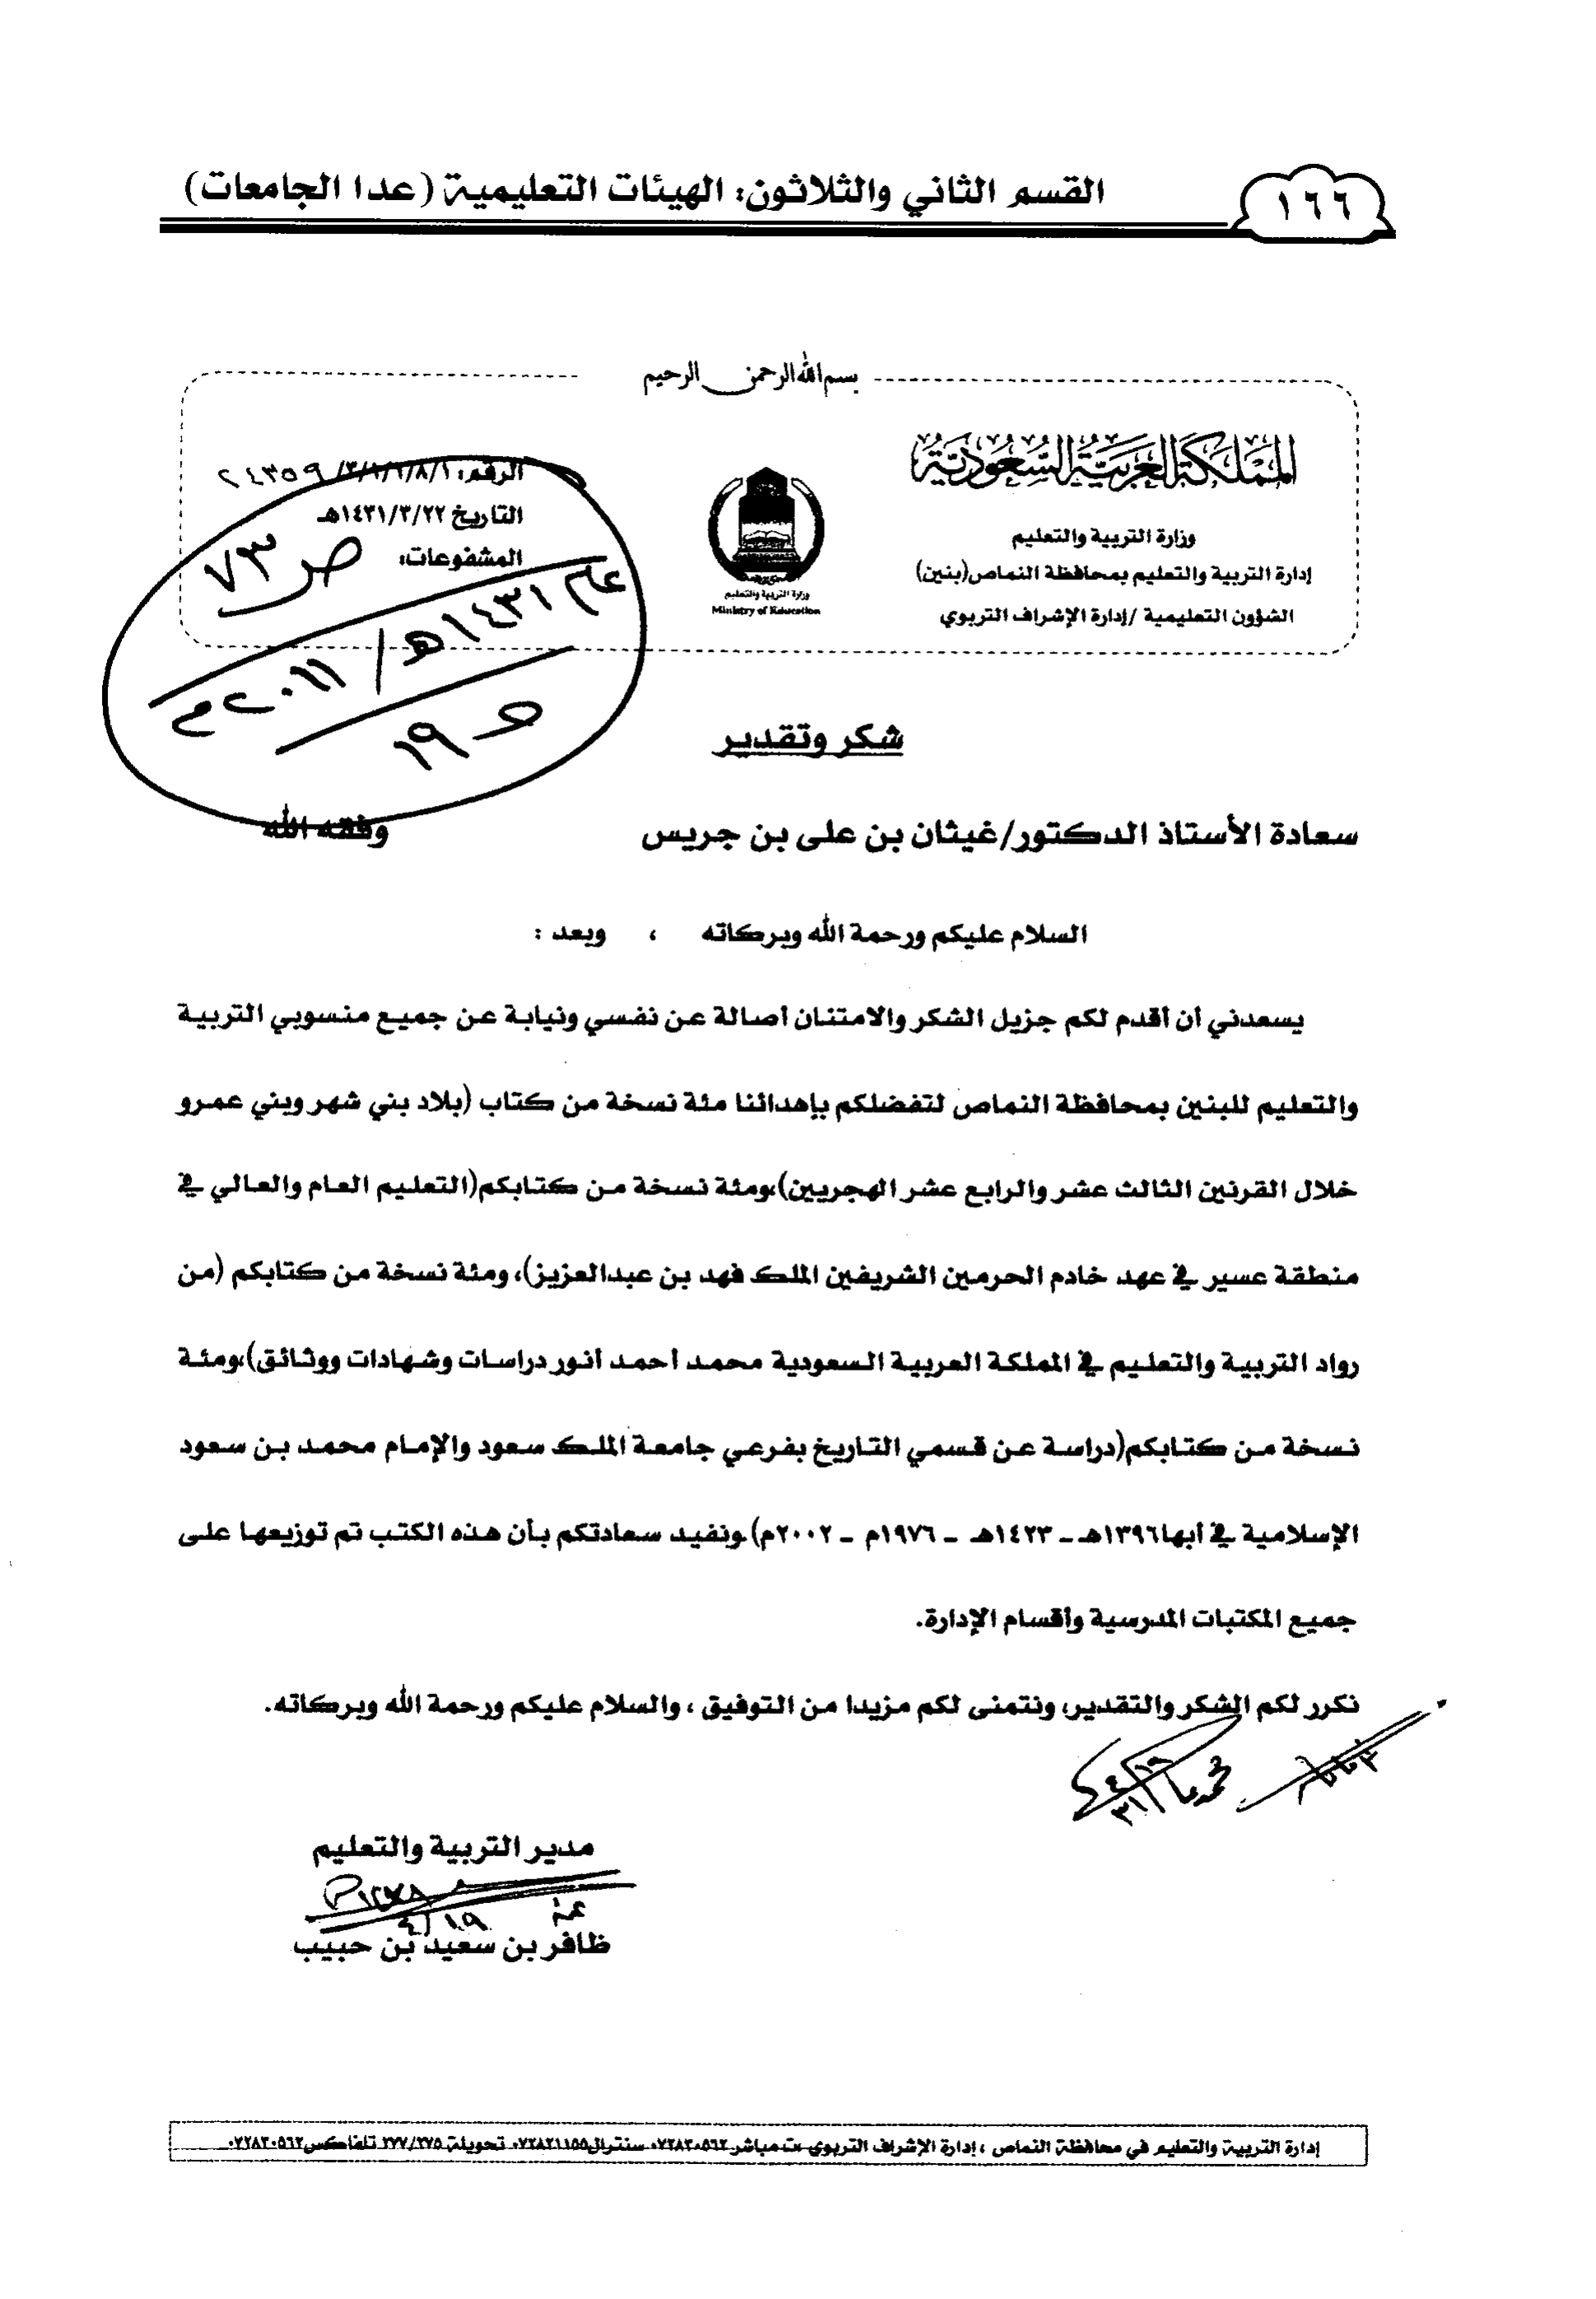 القسم الثاني والثلاثون: الهيئات التعليمية (عدا الجامعات)
١٦٦
بسم الله الرحمن الرحيم
المملكة العربية السعودية
وزارة التربية والتعليم
إدارة التربية والتعليم بمحافظة النماص(بنين)
الشؤون التعليمية /إدارة الإشراف التربوي
وزارة التربية والتعليم
Ministry of Education
الرقم: ٢٤٣٥٩
التاريخ ١٤٣١/٣/٢٢هـ
المشفوعات:
ص ٧٣
عام ١٤٣١هـ / ٢٠١١م
١٩
شكر وتقدير
سعادة الأستاذ الدكتور/غيثان بن على بن جريس وفقه الله
السلام عليكم ورحمة الله وبركاته ، وبعد :
يسعدني أن أقدم لكم جزيل الشكر والامتنان أصالة عن نفسي ونيابة عن جميع منسوبي التربية
والتعليم للبنين بمحافظة النماص لتفضلكم بإهدائنا مئة نسخة من كتاب (بلاد بني شهر وبني عمرو
خلال القرنين الثالث عشر والرابع عشر الهجريين)،ومئة نسخة من كتابكم(التعليم العام والعالي في
منطقة عسير في عهد خادم الحرمين الشريفين الملك فهد بن عبدالعزيز)، ومئة نسخة من كتابكم (من
رواد التربية والتعليم في المملكة العربية السعودية محمد أحمد أنور دراسات وشهادات ووثائق)،ومئة
نسخة من كتابكم(دراسة عن قسمي التاريخ بفرعي جامعة الملك سعود والإمام محمد بن سعود
الإسلامية في أبها١٣٩٦هـ ـ ١٤٢٣هـ ـ ١٩٧٦م ـ ٢٠٠٢م).ونفيد سعادتكم بأن هذه الكتب تم توزيعها على
جميع المكتبات المدرسية وأقسام الإدارة.
نكرر لكم الشكر والتقدير، ونتمنى لكم مزيدا من التوفيق ، والسلام عليكم ورحمة الله وبركاته.
مدير التربية والتعليم
٤/١٩
ظافر بن سعيد بن حبيب
إدارة التربية والتعليم في محافظة النماص ، إدارة الإشراف التربوي ت مباشر ٠٧٢٨٢٠٥٦٢ سنترال٠٧٢٨٢١١٥٥ تحويلة ٢٧٧/٢٧٥ تلفاكس٠٧٢٨٢٠٥٦٢